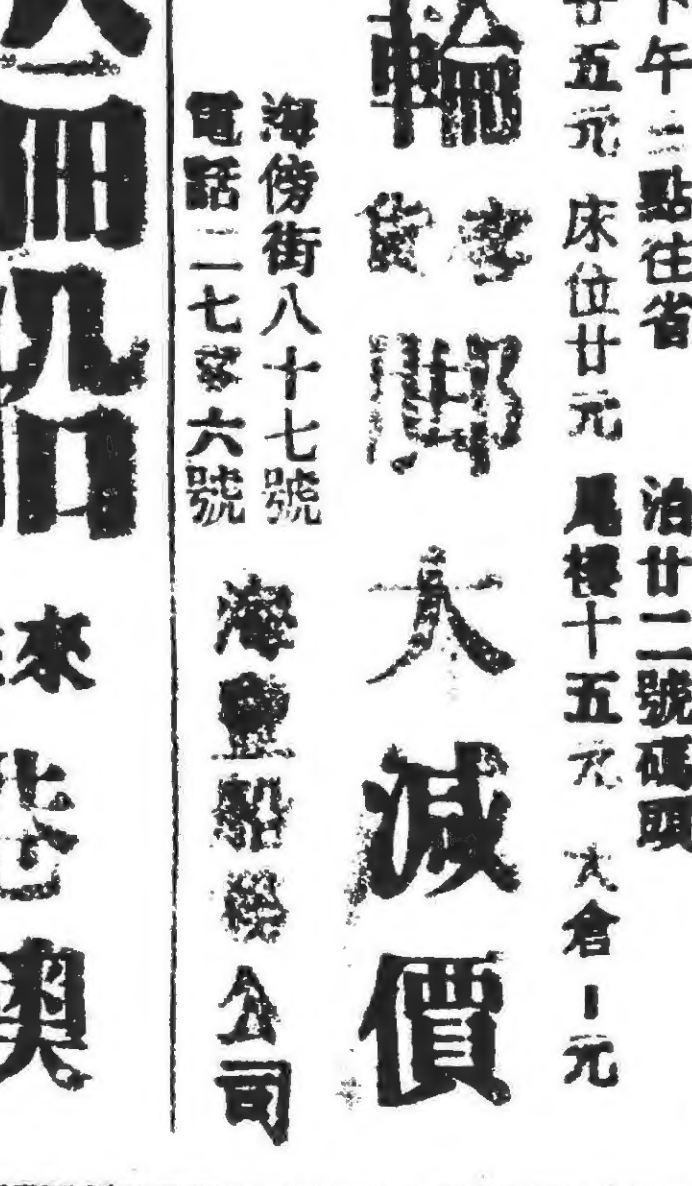 下午二點往省 泊廿二號碼頭
廿五元 床位廿元 尾樓十五元 大倉一元
輪客貨脚大減價
海傍街八十七號
電話二七零六號
海豐船務公司
來 港澳